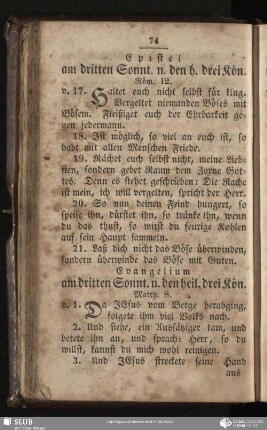 74
Epistel
am dritten Sonnt. n. den h. drei Kön.
Röm. 12.
v. 17. Haltet euch nicht selbst für klug.
Vergeltet niemanden Böses mit
Bösem. Fleißiget euch der Ehrbarkeit ge-
gen jedermann.
18. Ist möglich, so viel an euch ist, so
habt mit allen Menschen Friede.
19. Rächet euch selbst nicht, meine Lieb-
sten, sondern gebet Raum dem Zorne Got-
tes. Denn es stehet geschrieben: Die Rache
ist mein, ich will vergelten, spricht der Herr.
20. So nun deinen Feind hungert, so
speise ihn, dürstet ihn, so tränke ihn, wenn
du das thust, so wirst du feurige Kohlen
auf sein Haupt sammeln.
21. Laß dich nicht das Böse überwinden,
sondern überwinde das Böse mit Guten.
Evangelium
am dritten Sonnt. n. den heil. drei Kön.
Matth. 8.
v. 1. Da JEsus vom Berge herabging,
folgete ihm viel Volks nach.
2. Und siehe, ein Aussätziger kam, und
betete ihn an, und sprach: Herr, so du
willst, kannst du mich wohl reinigen.
3. Und JEsus streckete seine Hand
aus
SLUB